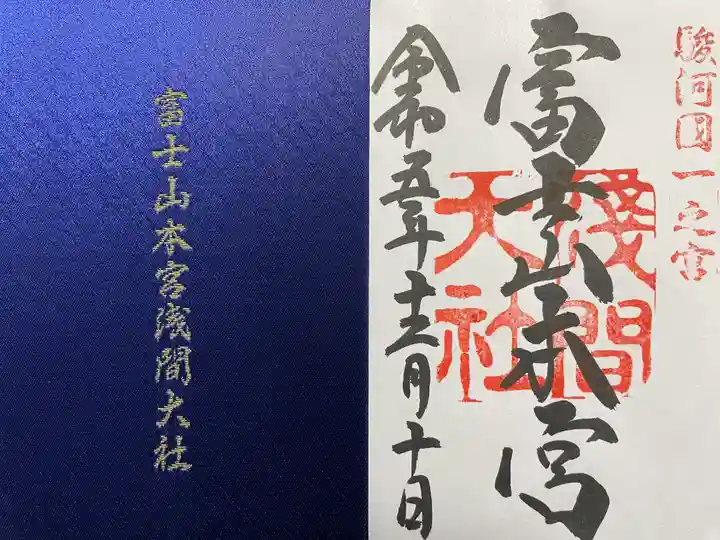 富士山本宮浅間大社
駿河国一之宮
富士山本宮
浅間大社
令和五年十二月十日